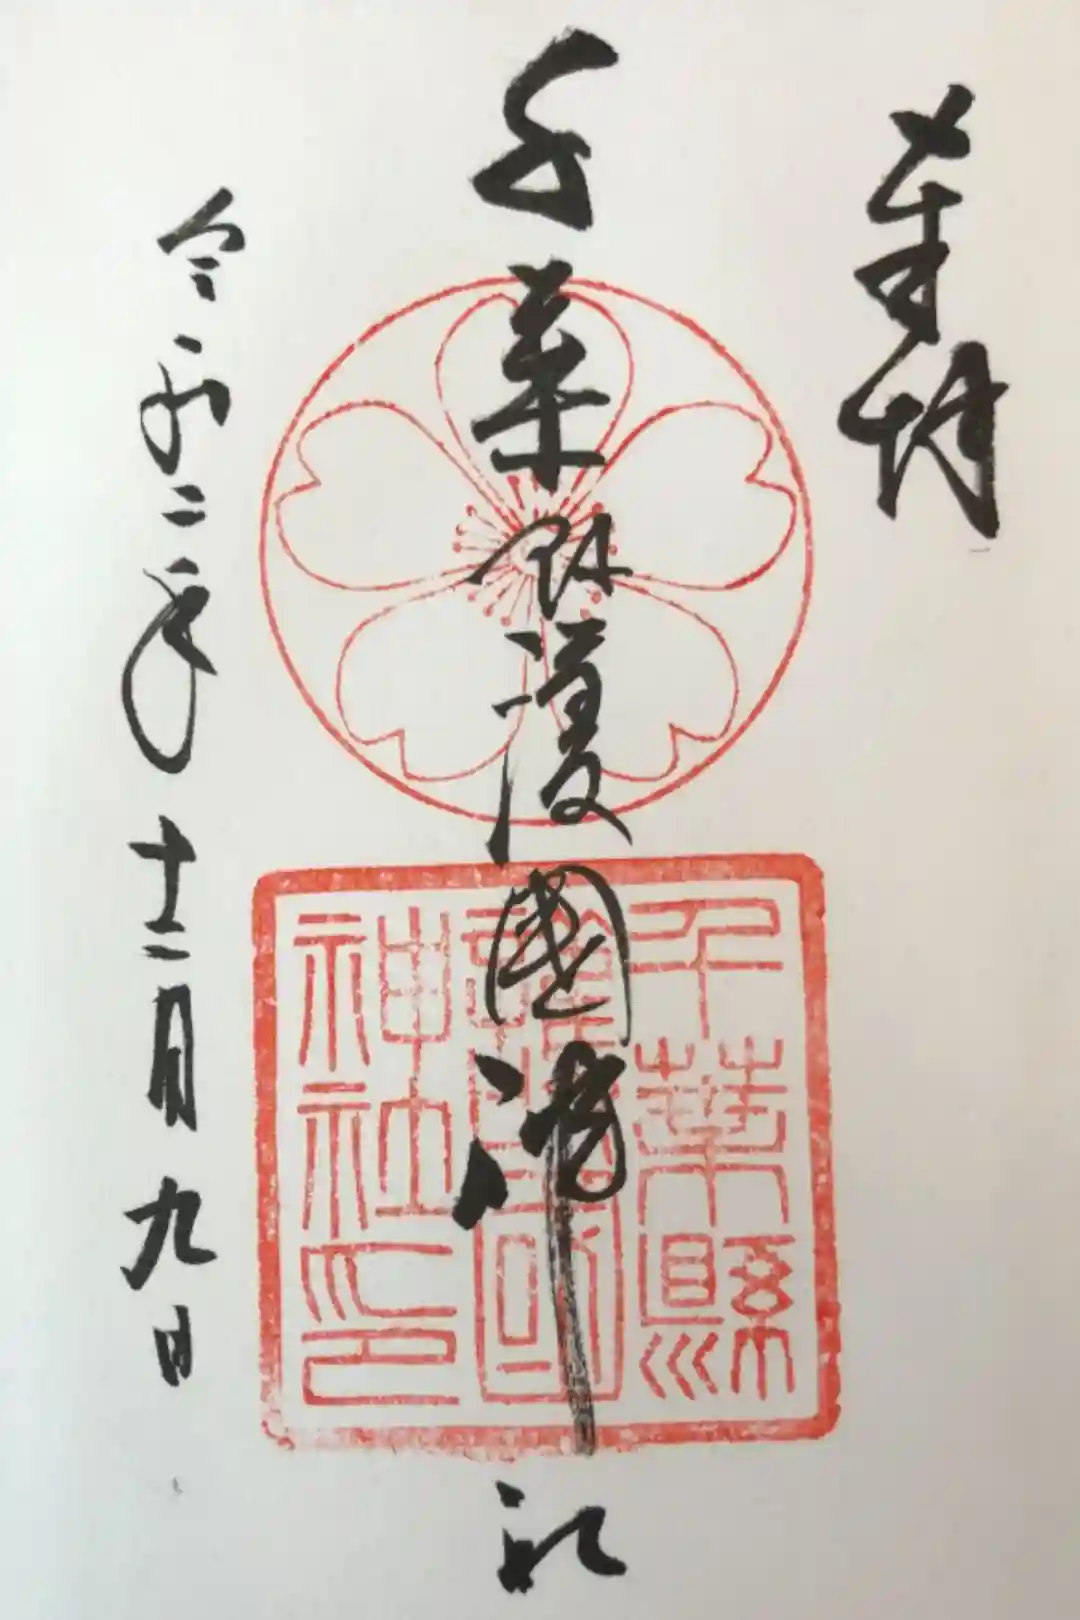 奉拝
千葉縣護國神社
千葉縣
護國
神社印
令和二年十二月九日